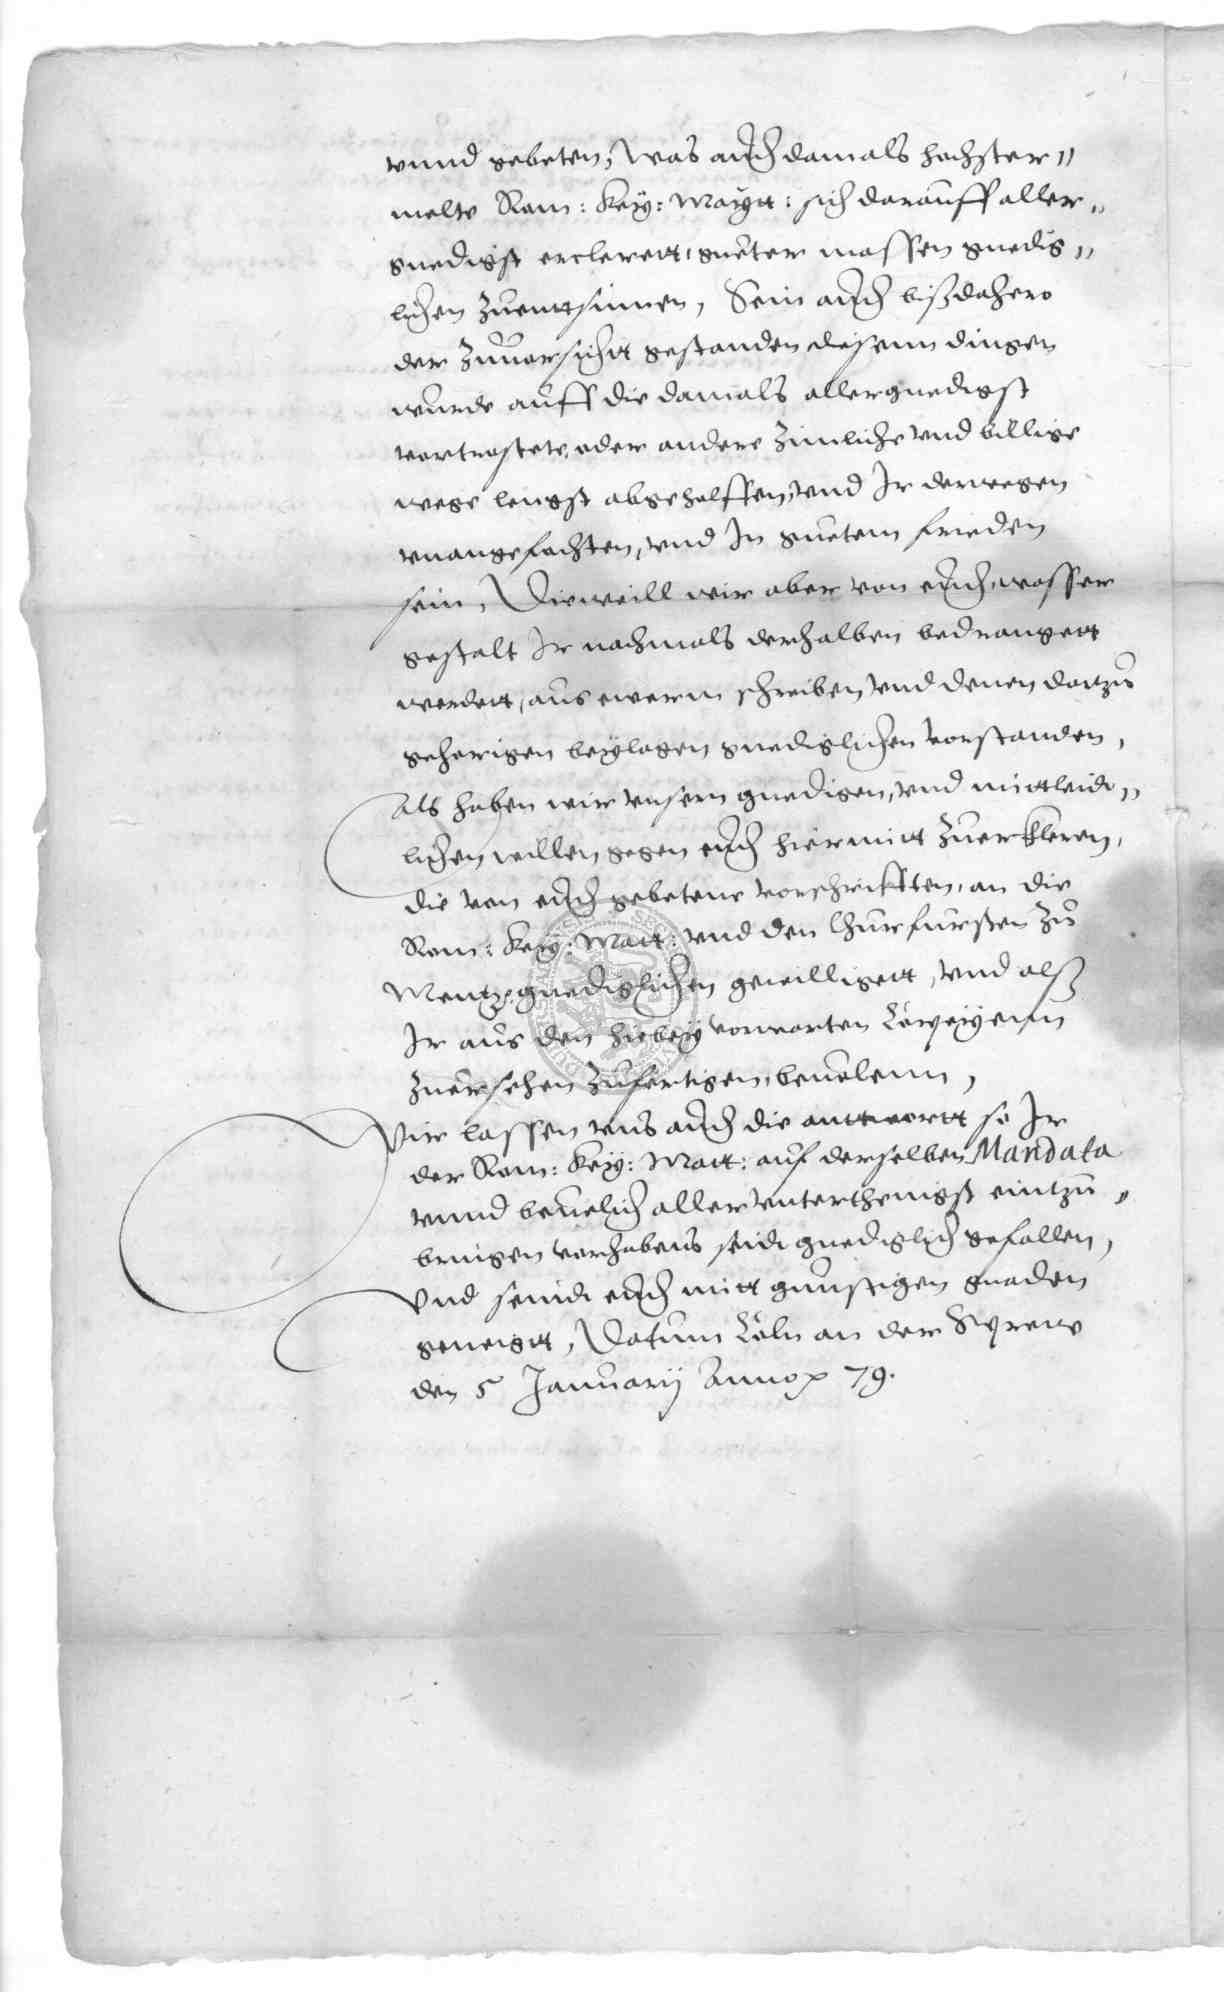 vnnd gebeten, Was auch damals hochster-
melte Rom: Key: Maytt: sich darauff aller-
gnedigst erclerett, gueter massen gnedig-
lichen zuentsinnen, Sein auch bißdahero
der zuuorsicht gestanden diesenn dingen
wurde auff die damals allergnedigst
vortrostete, oder andere zimliche vnd billige
wege lengst abgeholffen, vnd Ir derwegen
vnangefochten, vnd In guetem frieden
sein, Dieweill wir aber von euch, wasser
gestalt Ir nochmals derhalben bedrangett
werdett, aus ewerm schreiben vnd denen dartzu
gehorigen beylagen gnediglichen vorstanden,
Als haben wir vnsern gnedigen, vnd mittleid-
lichen willen gegen euch hiermitt zuerkleren,
die von euch gebetene vorschrifften, an die
Rom: Key: Matt: vnd den Churfursten zu
Mentz, gnediglichen gewilligett, vnd alß
Ir aus den hiebey vorwarten Copeyenn
zuersehen zufertigen, beuolenn,
Wir lassen vns auch die anttwortt so Ir
der Rom: Key: Matt: auf derselben Mandata
vnnd beuelich aller vnterthenigst eintzu-
bringen vorhabens seidt gnediglich gefallen,
Vnd seindt euch mitt gunstigen gnaden
geneigtt, Datum Cöln an der Sprew
den 5 Januarij Anno 79.